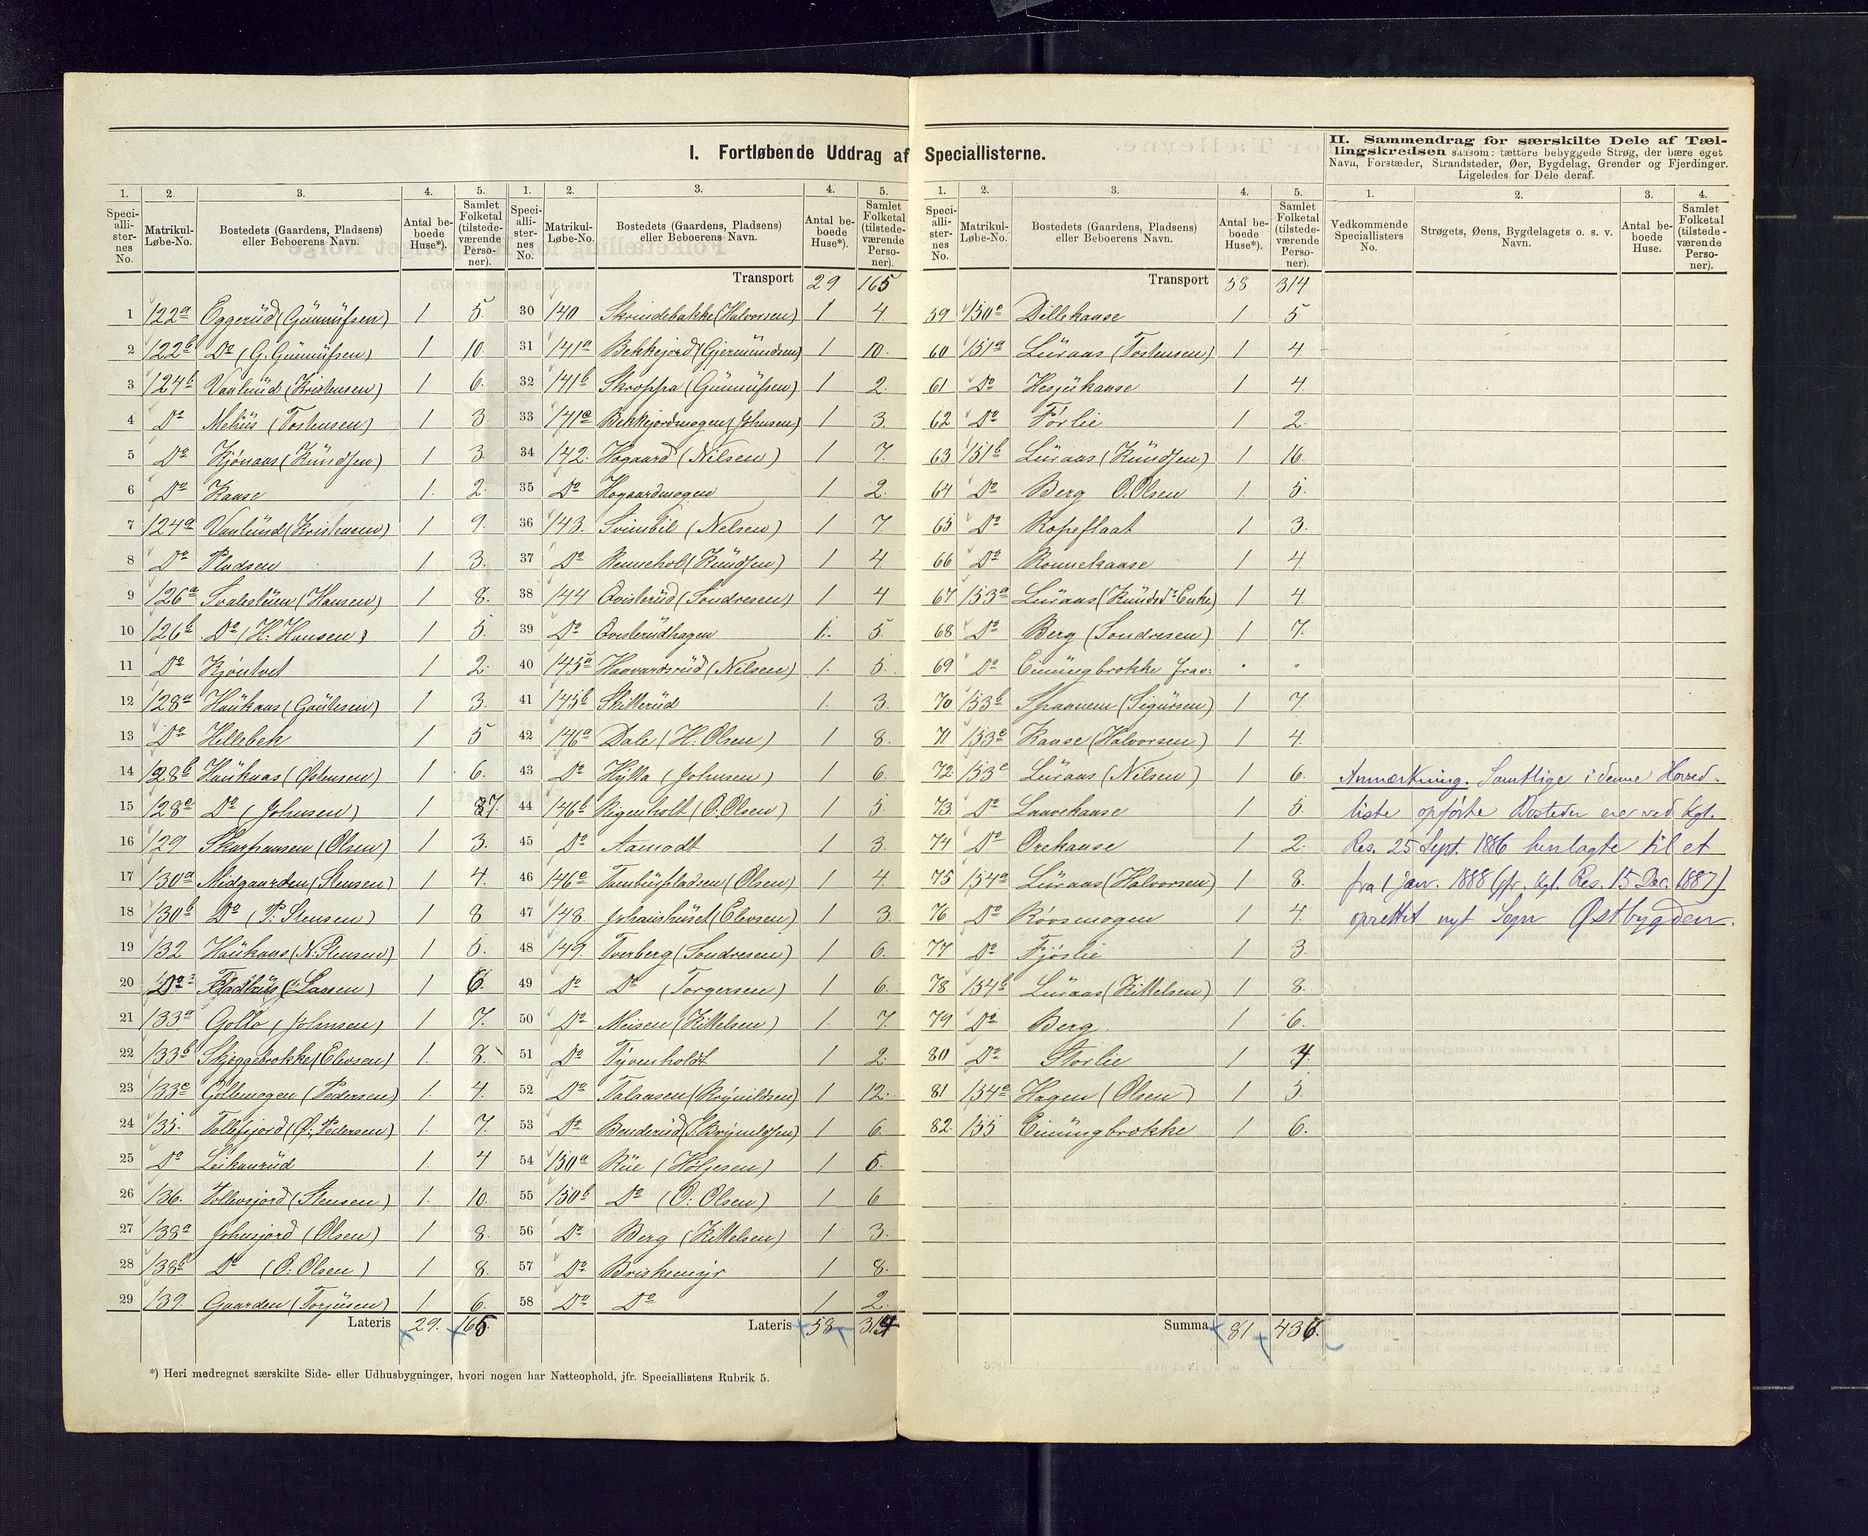 I. Fortløbende Uddrag af Speciallisterne.
II. Sammendrag for særskilte Dele af Tæl-
lingskredsen saasom: tættere bebyggede Strøg, der bære eget
Navn, Forstæder, Strandsteder, Øer, Bygdelag, Grender og Fjerdinger.
Ligeledes for Dele deraf.
1. 2. 3. 4. 5.
Speci-allister-nes No. Matrikul-Løbe-No. Bostedets (Gaardens, Pladsens) eller Beboerens Navn. Antal be-boede Huse*). Samlet Folketal (tilstede-værende Perso-ner).
1 122a Eggerud (Gunnufsen) 1 5
2 122b Do (G. Gunnufsen) 1 10.
3 124b Vaalund (Kristensen) 1 6.
4 Do Mehus (Tostensen) 1 3
5 Do Kjønaas (Knudsen) 1 3
6 Do Kaase 1. 2
7 124a Vaalund (Kristensen) 1 9.
8 Do Pladsen 1 3.
9 126a Svalestuen (Hansen) 1 8.
10 126b Do (H. Hansen) 1 5.
11 Do Kjøntvet 1 2.
12 128a Haukaas (Gautesen) 1 3.
13 Do Hellebek 1 5
14 128b Haukaas (Østensen) 1 6.
15 128c Do (Johnsen) 1 7.
16 129 Skarpaasen (Olsen) 1 3.
17 130a Midgaarden (Stensen) 1 4.
18 130b Do (P. Stensen) 1 8
19 132 Haukaas (N. Stensen) 1 5.
20 Do (Larsen) 1 6.
21 133a Gollo (Johnsen) 1 7.
22 133b Skjeggebrokke (Elevsen) 1. 8.
23 133c Gollemogen (Pedersen) 1. 4.
24 135. Tollefjord (Ø. Pedersen) 1. 7.
25 Do Leikanrud 1. 4
26 136. Tollevsjord (Stensen) 1. 10.
27 138a Johnsjord (Olsen) 1 8.
28 138b Do (O. Olsen) 1 8.
29 139. Gaarden (Torjusen) 1 6.
Lateris 29. 165
*) Heri medregnet særskilte Side- eller Udhusbygninger, hvori nogen har Natteophold, jfr. Speciallistens Rubrik 5.
1. 2. 3. 4. 5.
Speci-allister-nes No. Matrikul-Løbe-No. Bostedets (Gaardens, Pladsens) eller Beboerens Navn. Antal be-boede Huse*). Samlet Folketal (tilstede-værende Perso-ner).
Transport 29 165
30 140 Skrindebakke (Halvorsen) 1 4.
31 141a Bekkejord (Gjermundsen) 1 10.
32 141b Skroppa (Gunnufsen) 1 2.
33 141c Bekkejordmogen (Johnsen) 1 3.
34 142. Hogaard (Nilsen) 1 7.
35 Do Hogaardmogen 1 2.
36 143. Svimbil (Nelsen) 1 7
37 Do Rennehol (Knudsen) 1 4
38 144 Qvisterud (Sondresen) 1 4
39 Do Qvisterudhagen 1. 5.
40 145a Haavardsrud (Nilsen) 1. 5.
41 145b Skitterud 1. 3.
42 146a Dale (H. Olsen) 1 8.
43 Do Hylla (Johnsen) 1 6.
44 146b Rigenholt (O. Olsen) 1 5.
45 Do Aamodt 1 3.
46 146c Tamburpladsen (Olsen) 1 4
47 148. Johnshuset (Elevsen) 1 3.
48 149. Tverberg (Sondresen) 1 6.
49 Do Do (Torgersen) 1 6.
50 Do Meisen (Kittelsen) 1. 7.
51 Do Tyvenholdt 1 2.
52 Do Talaasen (Brynildsen) 1 12.
53 Do Benderud (S. Brynildsen) 1 6.
54 150a Rue (Holjesen) 1 5.
55 150b Do (O. Olsen) 1 6
56 Do Berg (Kittelsen) 1 3.
57 Do Briskemyr 1 8.
58 Do Do 1 2.
Lateris 58 314
1. 2. 3. 4. 5.
Speci-allister-nes No. Matrikul-Løbe-No. Bostedets (Gaardens, Pladsens) eller Beboerens Navn. Antal be-boede Huse*). Samlet Folketal (tilstede-værende Perso-ner).
Transport 58 314
59 150c Dillekaase 1 5
60 151a Luraas (Tostensen) 1 4
61 Do Hesjukaase 1 4
62 Do Førlie 1 2.
63 151b Luraas (Knudsen) 1 16.
64 Do Berg O. Olsen 1. 5.
65 Do Kopeflaat 1 3.
66 Do Ronnekaase 1 4
67 153a Luraas (Knudsds Enke) 1 4.
68 Do Berg (Sondresen) 1 7.
69 Do Einungbrokke frav: " "
70 153b Spaanem (Sigursen) 1 7
71 153c Kaase (Halvorsen) 1 4.
72 153c Luraas (Nilsen) 1 6.
73. Do Lauvekaase 1 5
74 Do Orekaase 1 2.
75 154a Luraas (Halvorsen) 1 8.
76 Do Rovsmogen 1 4.
77 Do Fjøslie 1 3.
78 154b Luraas (Kittelsen) 1 8.
79 Do Berg. 1 6.
80 Do Storlie 1
81 154c Hagen (Olsen) 1 5.
82. 155 Einungbrokke 1 6.
Summa 81 436.
1. 2. 3. 4.
Vedkommende Speciallisters No. Strøgets, Øens, Bygdelagets o. s. v. Navn. Antal be-boede Huse. Samlet Folketal (tilstede-værende Perso-ner).
Anmærkning. Samtlige i denne Herred-
liste opførte Bosteder ere ved kgl.
Res. 25 Sept. 1886 henlagte til et
fra 1 Jan. 1888 (jfr. kgl. Res. 15 Dec. 1887)
oprettet nyt Sogn Østbygden.